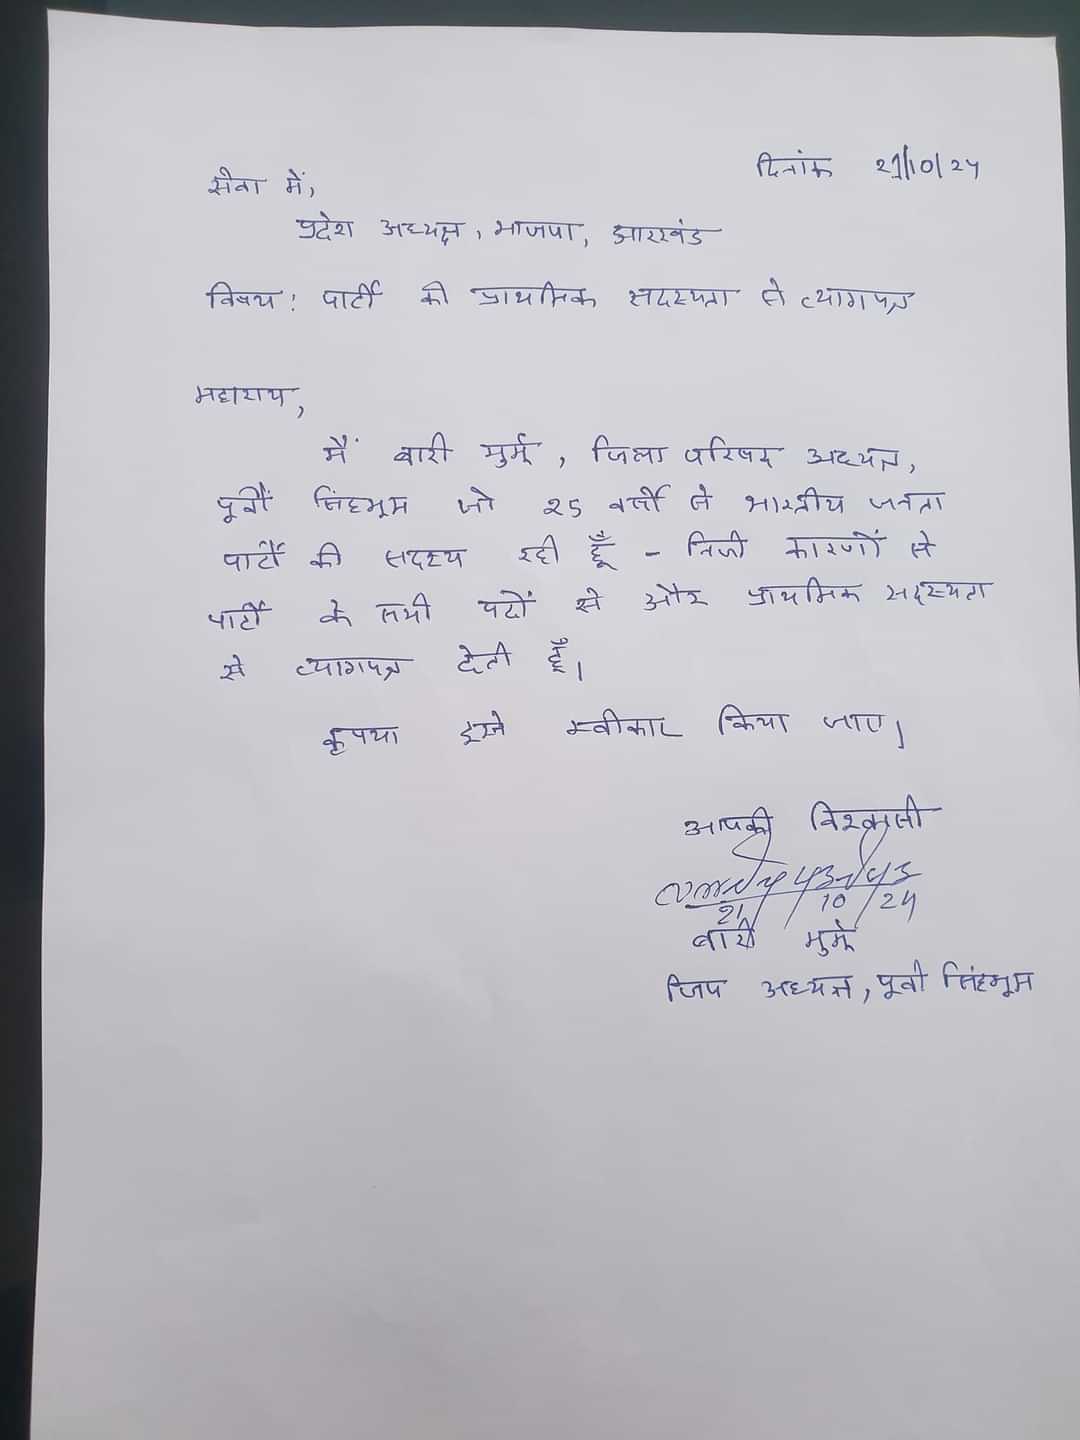 दिनांक 21/10/24
सेवा में,
प्रदेश अध्यक्ष, भाजपा, झारखंड
विषय: पार्टी की प्राथमिक सदस्यता से त्यागपत्र
महाशय,
मैं बारी मुर्मू, जिला परिषद अध्यक्ष,
पूर्वी सिंहभूम जो 25 वर्षों से भारतीय जनता
पार्टी की सदस्य रही हूँ - निजी कारणों से
पार्टी के सभी पदों से और प्राथमिक सदस्यता
से त्यागपत्र देती हूँ।
कृपया इसे स्वीकार किया जाए।
आपकी विश्वासी
21/10/24
बारी मुर्मू
जिप अध्यक्ष, पूर्वी सिंहभूम